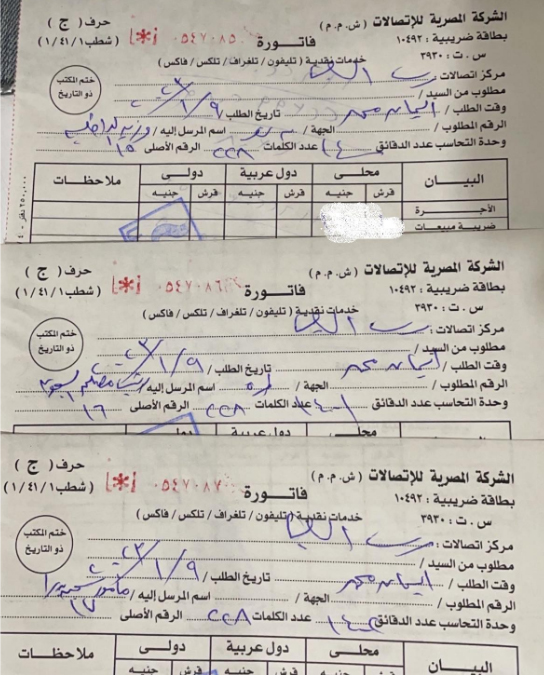 الشركة المصرية للإتصالات (ش.م.م) حرف ( ج )
بطاقة ضريبية : ١٠٤٩٢ فاتورة ٠٥٤٧٠٨٥ (شطب١/٤١/١)
س . ت : ٣٩٣٠ خدمات نقدية ( تليفون / تلغراف / تلكس / فاكس )
مركز اتصالات :
ختم المكتب
ذو التاريخ
مطلوب من السيد /
وقت الطلب / ايمان محمد تاريخ الطلب / ٩/١/
الرقم المطلوب / الجهة / اسم المرسل إليه / وزير الداخلية
وحدة التحاسب عدد الدقائق ١٤٠ عدد الكلمات ٢٢٨ الرقم الأصلى ١٥
البيـــان محلـى دول عربية دولـى ملاحظات
قرش جنيه قرش جنيه قرش جنيه
الأجـرة
ضريبة مبيعات
الشركة المصرية للإتصالات (ش.م.م) حرف ( ج )
بطاقة ضريبية : ١٠٤٩٢ فاتورة ٠٥٤٧٠٨٦ (شطب١/٤١/١)
س . ت : ٣٩٣٠ خدمات نقدية ( تليفون / تلغراف / تلكس / فاكس )
مركز اتصالات :
ختم المكتب
ذو التاريخ
مطلوب من السيد /
وقت الطلب / ايمان محمد تاريخ الطلب / ٩/١/
الرقم المطلوب / الجهة / اسم المرسل إليه /
وحدة التحاسب عدد الدقائق عدد الكلمات ٢٢٨ الرقم الأصلى ١٦
محلـى دول عربية دولـى
الشركة المصرية للإتصالات (ش.م.م) حرف ( ج )
بطاقة ضريبية : ١٠٤٩٢ فاتورة ٠٥٤٧٠٨٧ (شطب١/٤١/١)
س . ت : ٣٩٣٠ خدمات نقدية ( تليفون / تلغراف / تلكس / فاكس )
مركز اتصالات :
ختم المكتب
ذو التاريخ
مطلوب من السيد /
وقت الطلب / ايمان محمد تاريخ الطلب / ٩/١/
الرقم المطلوب / الجهة / اسم المرسل إليه / مأمور
وحدة التحاسب عدد الدقائق عدد الكلمات ٢٢٨ الرقم الأصلى ١٧
البيـــان محلـى دول عربية دولـى ملاحظات
قرش جنيه قرش جنيه قرش جنيه